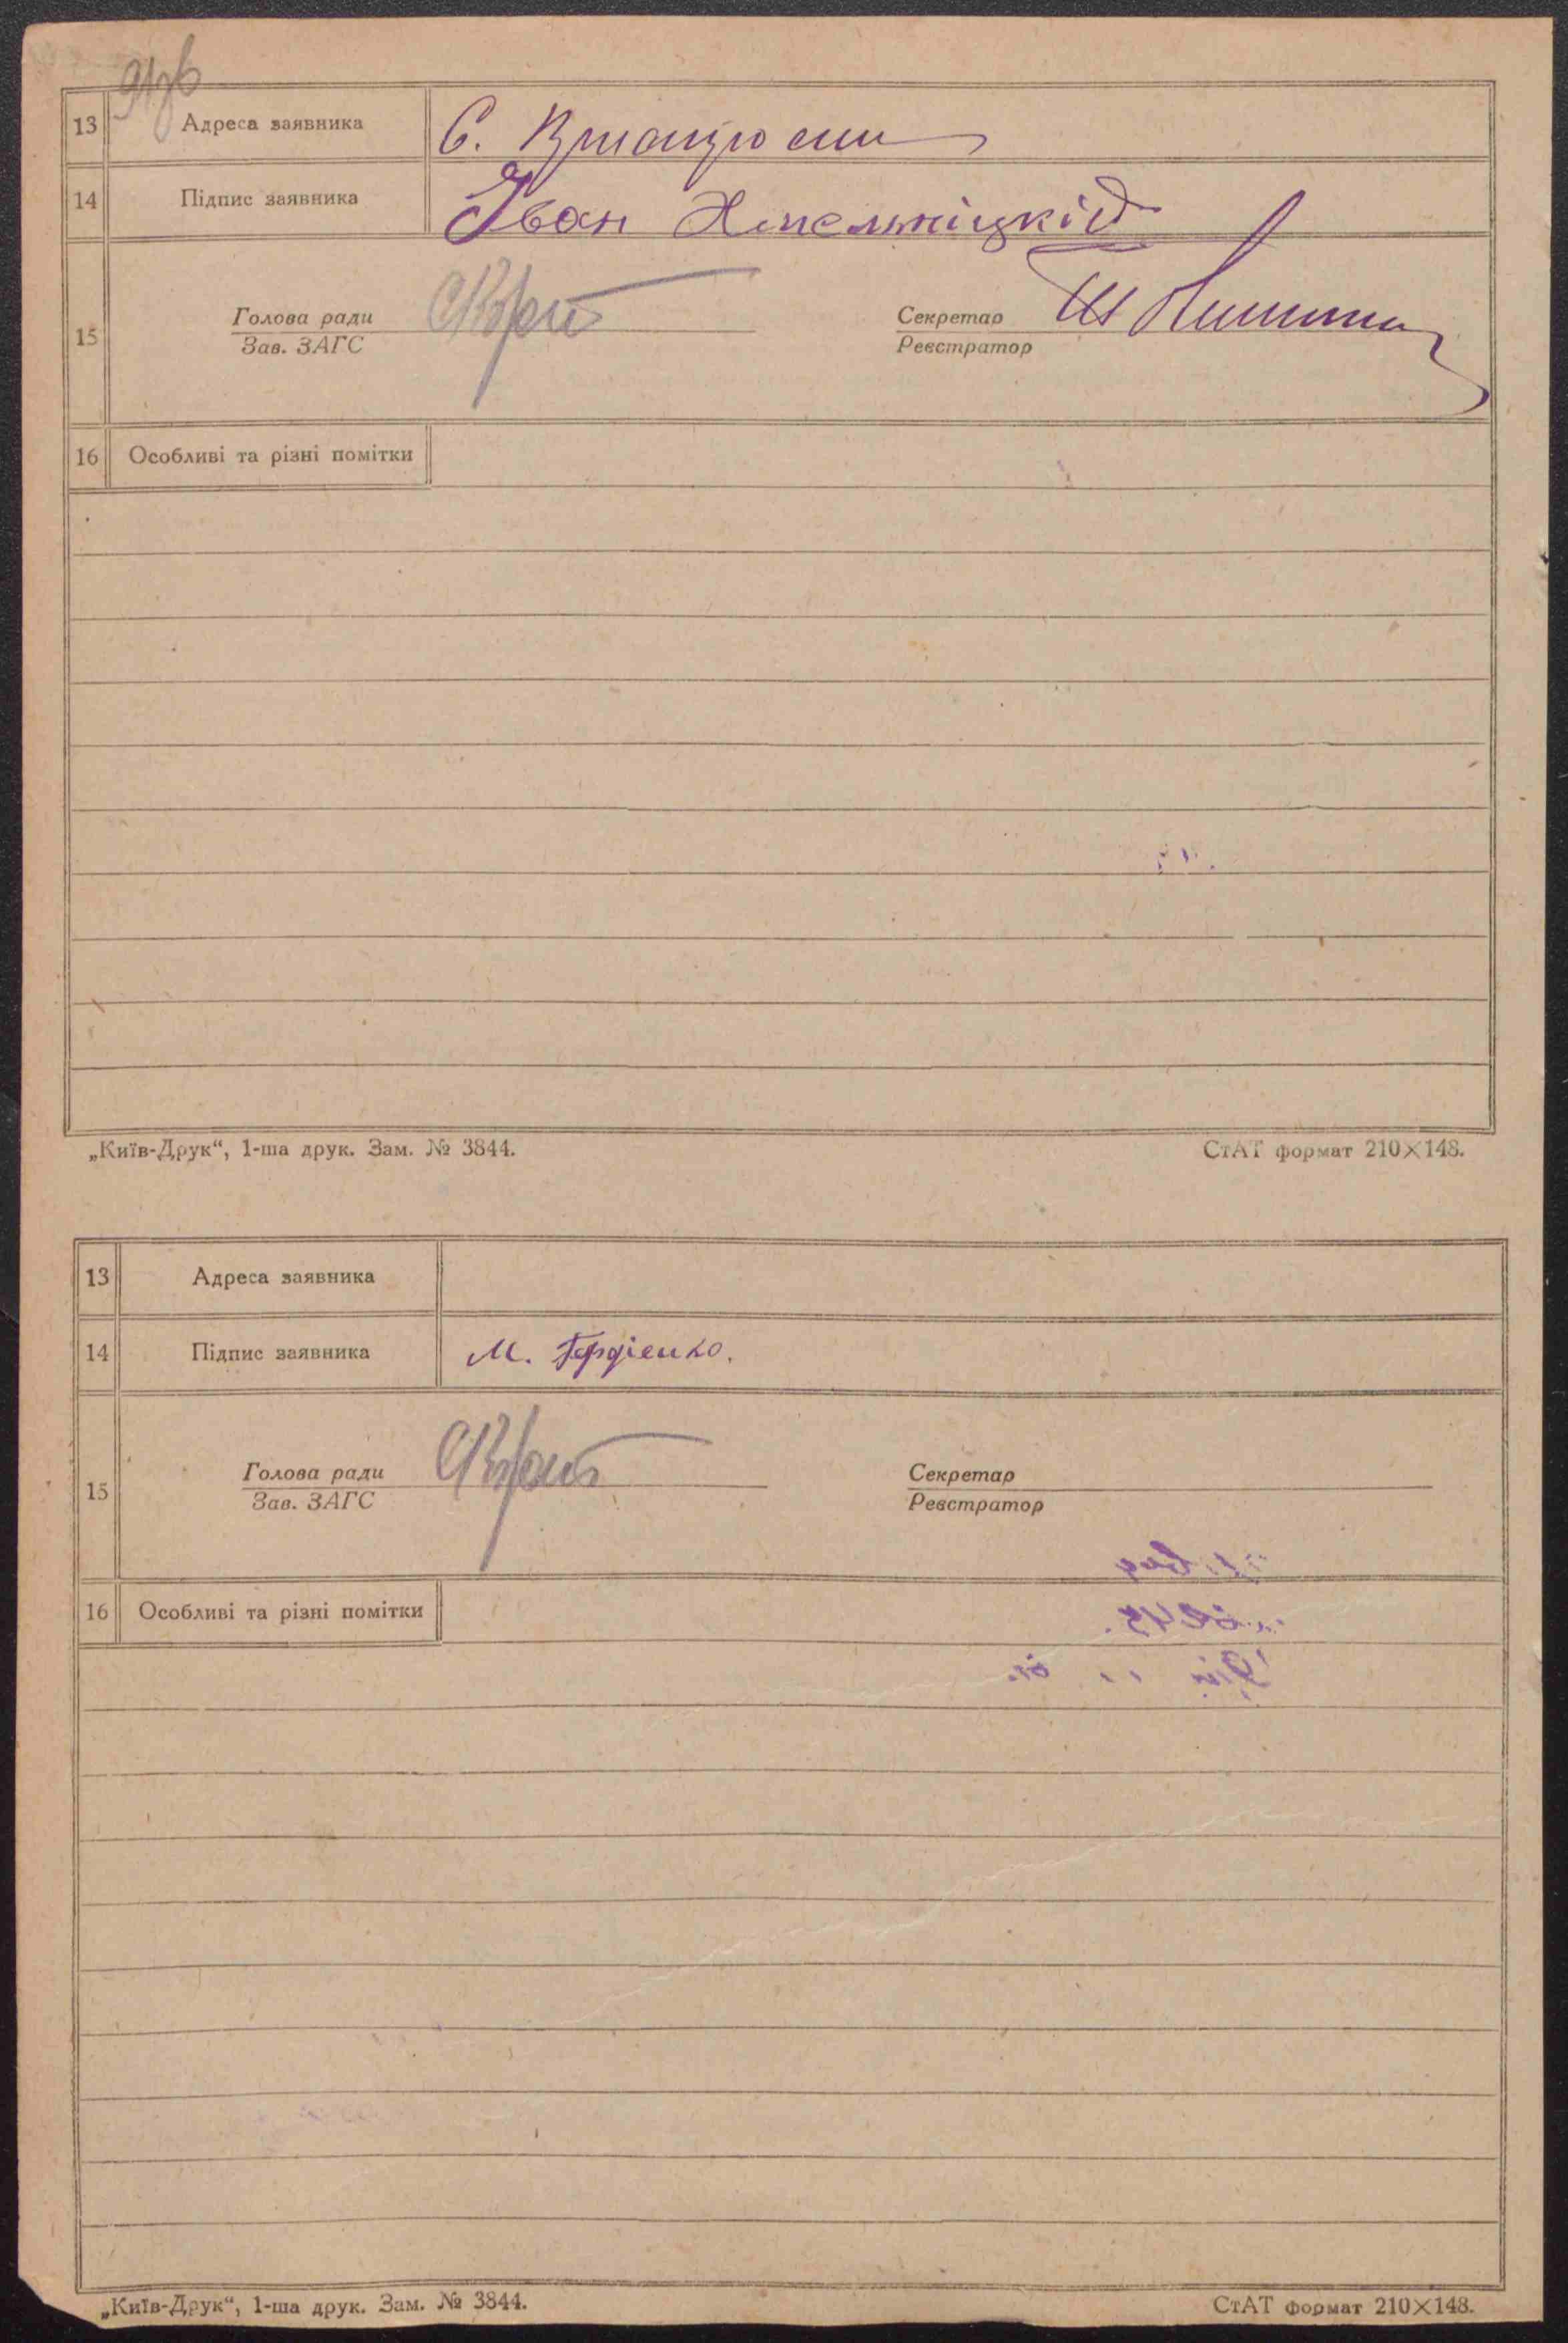 13 Адреса заявника С.
14 Підпис заявника Іван Хмельніцкій
15 Голова ради Секретар
Зав. ЗАГС Реєстратор
16 Особливі та різні помітки
„Київ-Друк“, 1-ша друк. Зам. № 3844. СтАТ формат 210×148.
13 Адреса заявника
14 Підпис заявника М. Гордієнко.
15 Голова ради Секретар
Зав. ЗАГС Реєстратор
16 Особливі та різні помітки
„Київ-Друк“, 1-ша друк. Зам. № 3844. СтАТ формат 210×148.